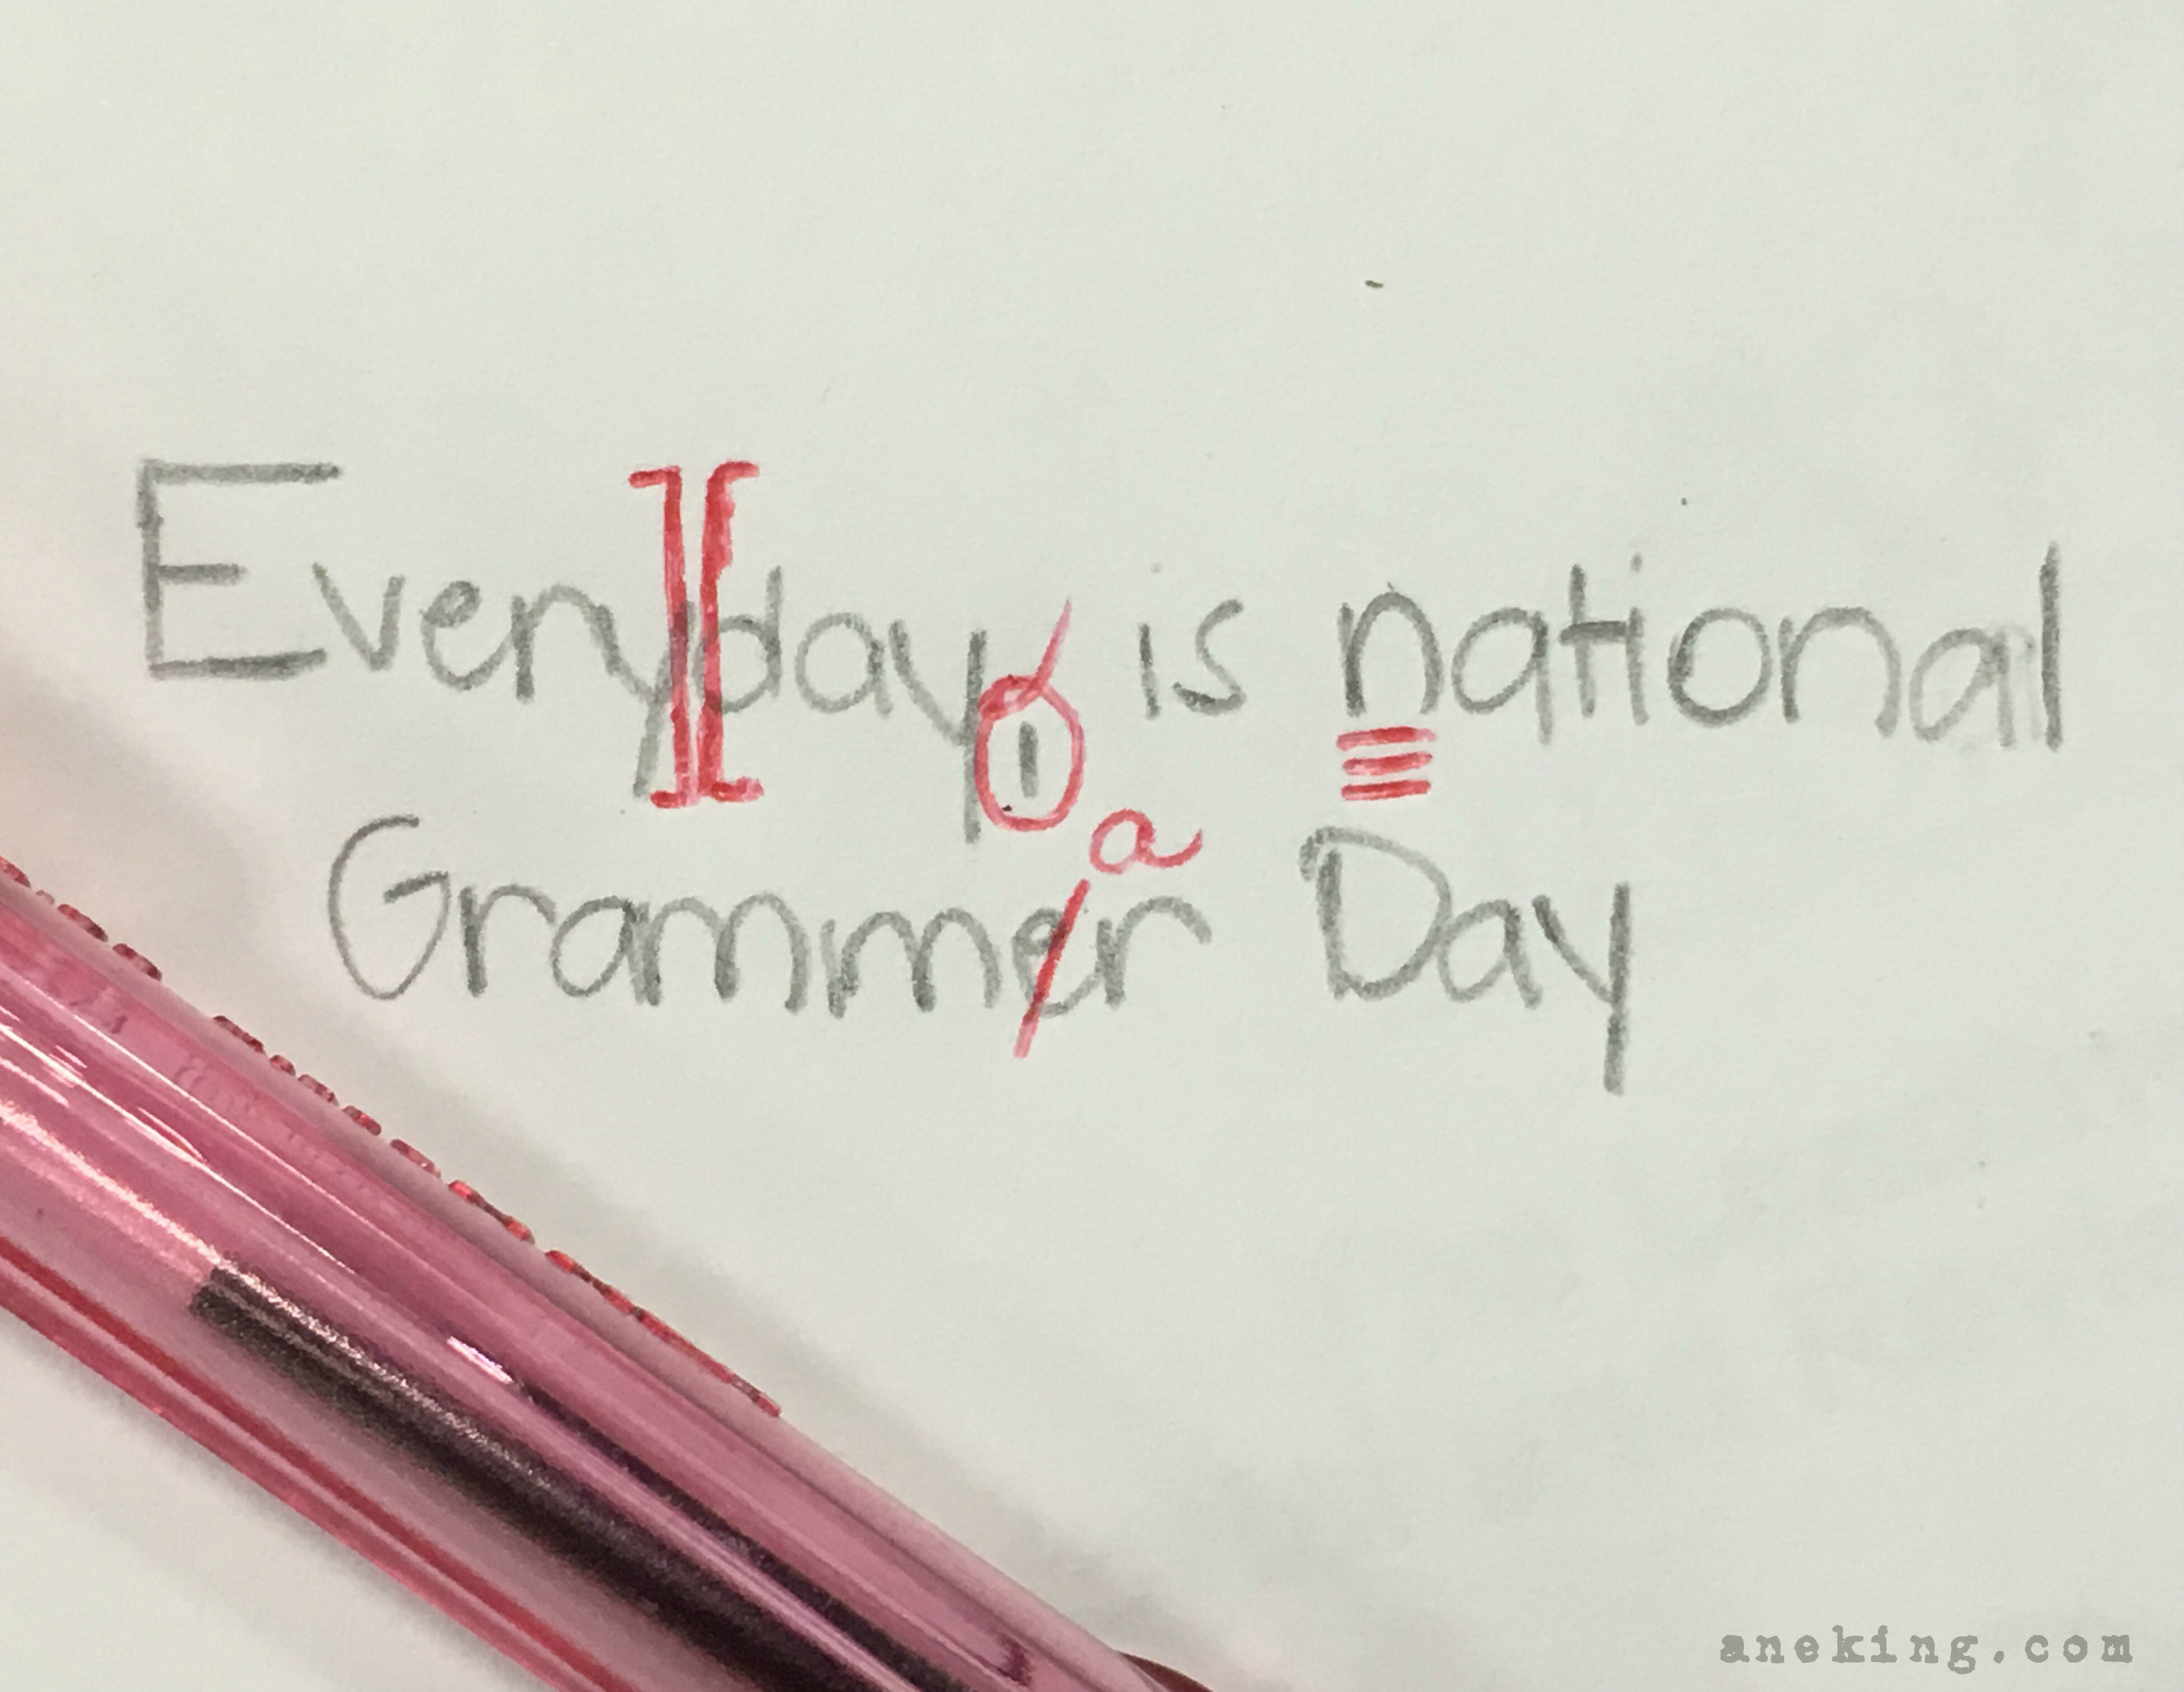 Everyday, is national
a
Grammer Day
aneking.com